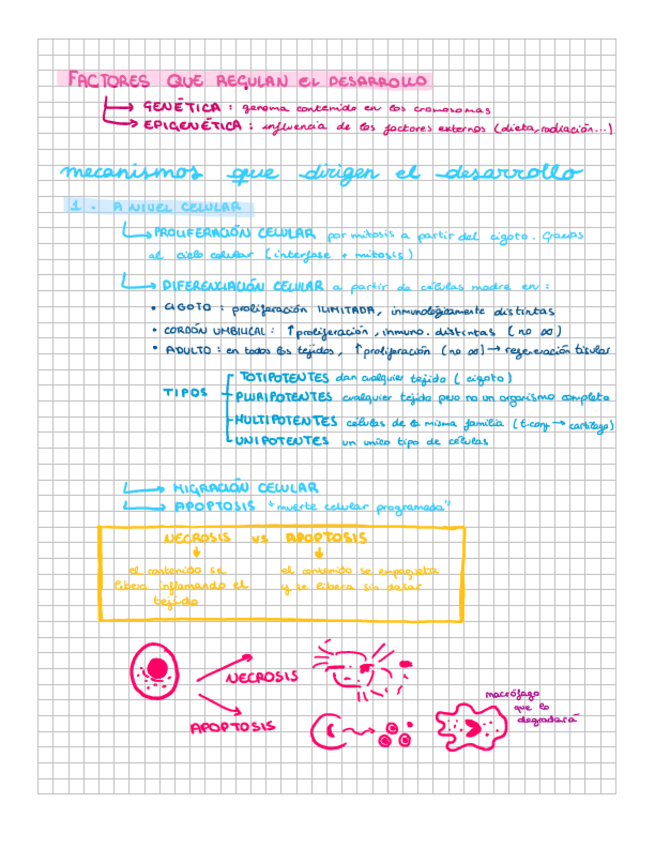 FACTORES QUE REGULAN EL DESARROLLO
GENÉTICA : genoma contenido en los cromosomas
EPIGENÉTICA : influencia de los factores externos (dieta, radiación...)
mecanismos que dirigen el desarrollo
1. A NIVEL CELULAR
PROLIFERACIÓN CELULAR por mitosis a partir del cigoto. Gracias
al ciclo celular (interfase + mitosis)
DIFERENCIACIÓN CELULAR a partir de células madre en :
• CIGOTO : proliferación ILIMITADA, inmunológicamente distintas
• CORDÓN UMBILICAL : ↑ proliferación, inmuno. distintas (no ∞)
• ADULTO : en todos los tejidos, ↑ proliferación (no ∞) → regeneración tisular
TIPOS
TOTIPOTENTES dan cualquier tejido (cigoto)
PLURIPOTENTES cualquier tejido pero no un organismo completo
MULTIPOTENTES células de la misma familia (t.conj → cartílago)
UNIPOTENTES un unico tipo de células
MIGRACIÓN CELULAR
APOPTOSIS "muerte celular programada"
NECROSIS vs APOPTOSIS
el contenido se el contenido se empaqueta
libera inflamando el y se libera sin dañar
tejido
NECROSIS
APOPTOSIS
macrófago
que lo
degradará